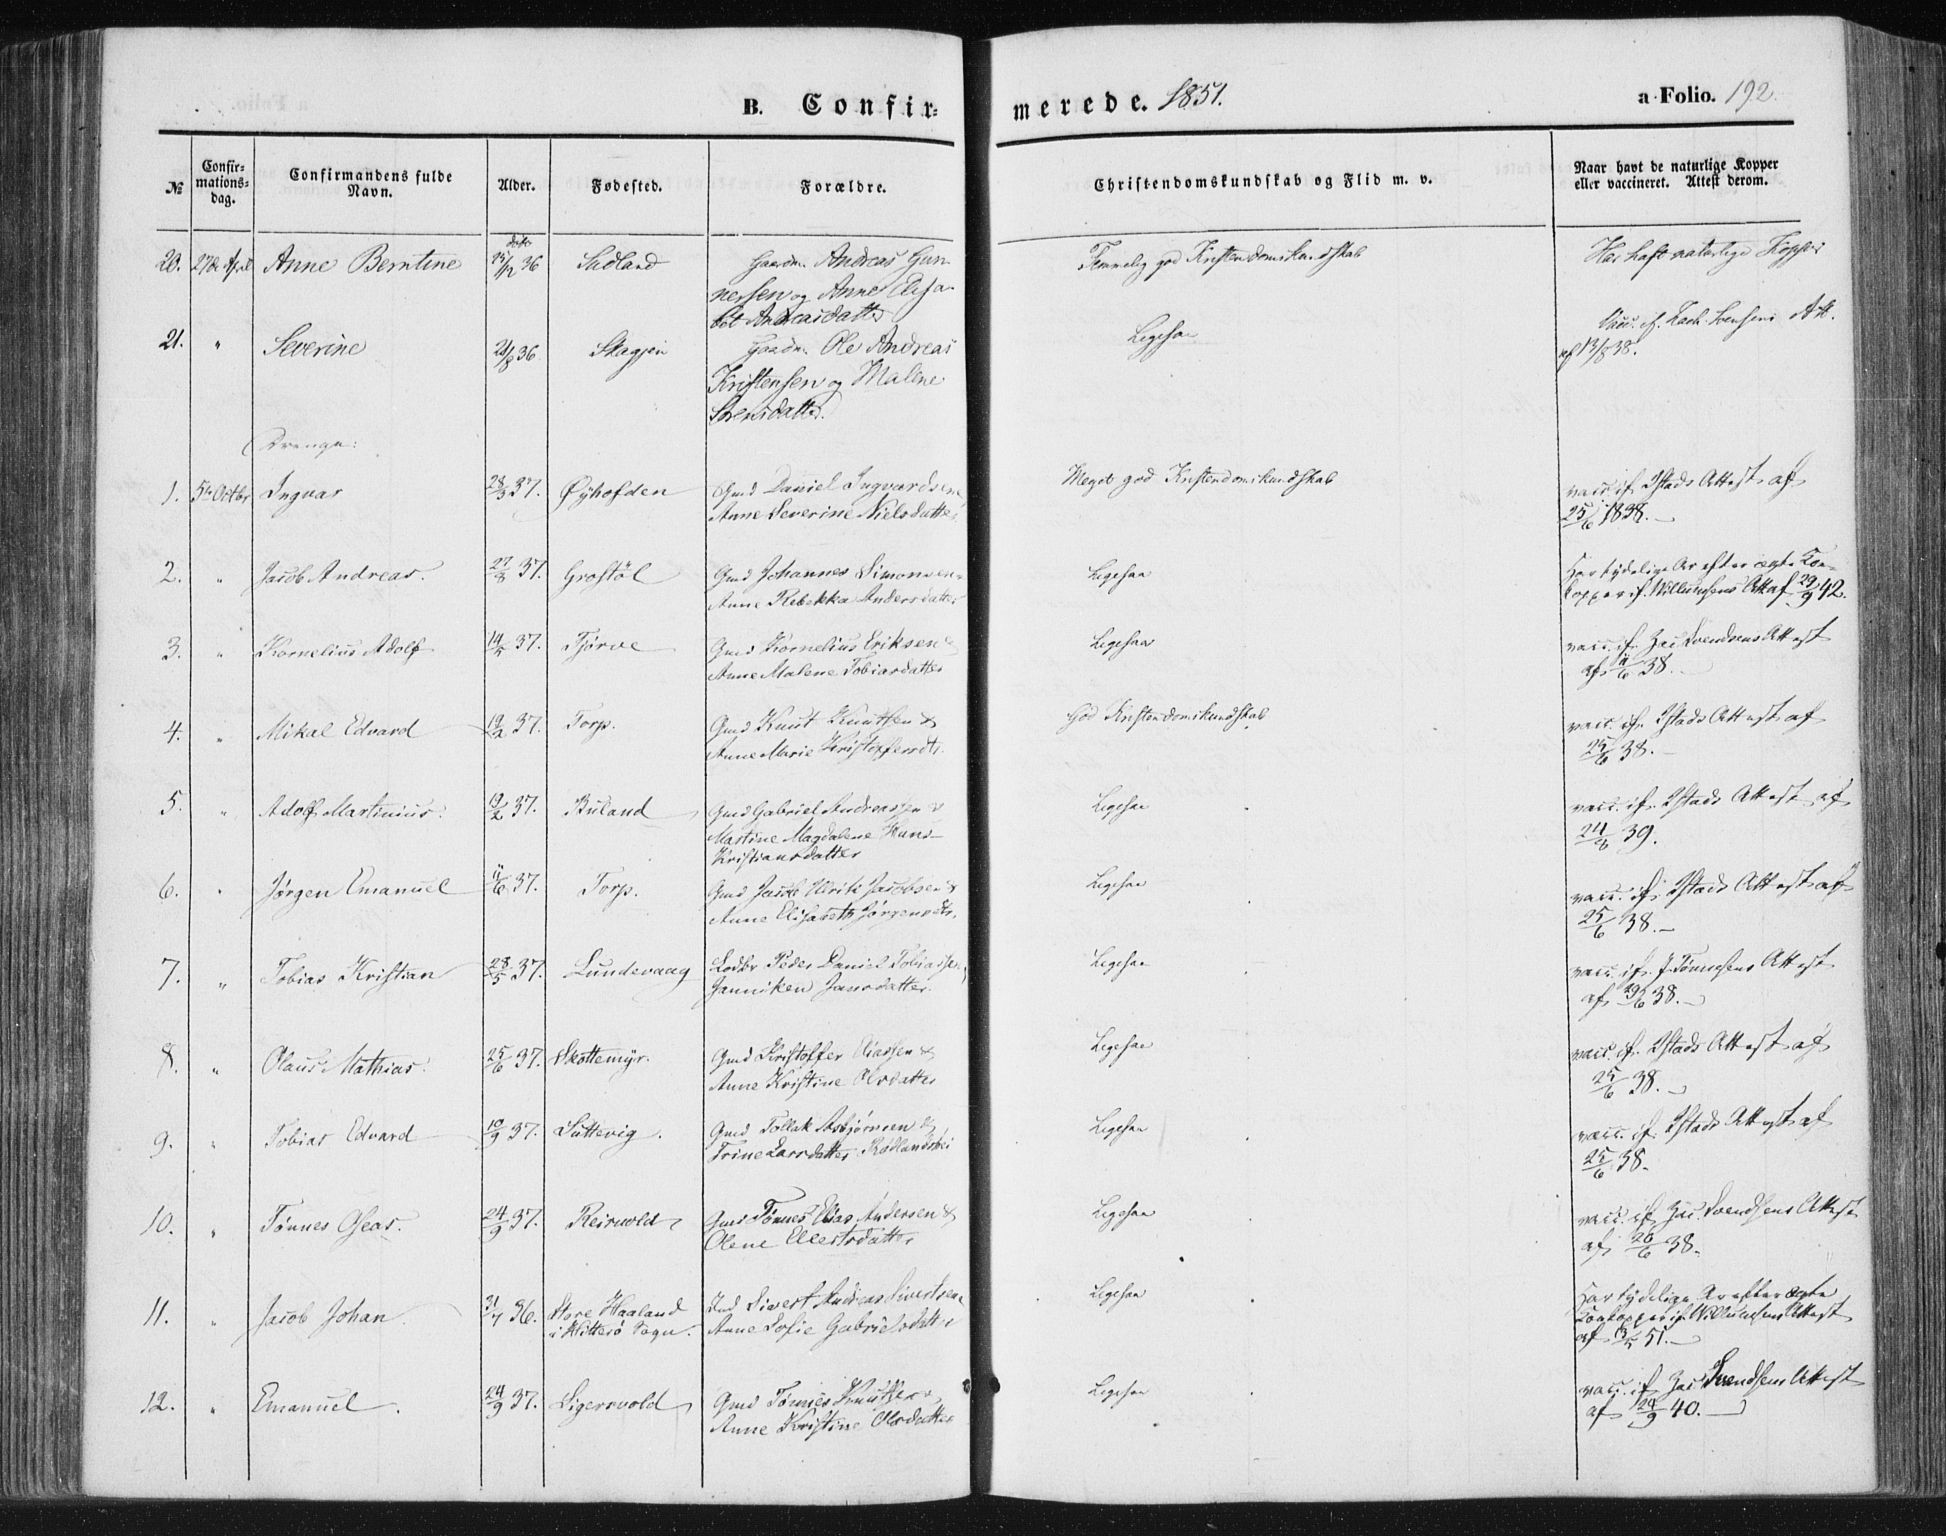 B. Confir-
merede. 1851.
a Folio. 192.
№
Confir-
mations-
dag.
Confirmandens fulde
Navn.
Alder.
Fødested.
Forældre.
Christendomskundskab og Flid m. v.
Naar havt de naturlige Kopper
eller vaccineret. Attest derom.
20. 27de April Anne Berntine 36 Sudland Gaardm. Andreas Gun-
nersen og Anne Elisa-
bet Andreasdatter
Temmelig god Kristendomskundskab
Har haft naturlige Kopper
21. " Severine 21/8 36 Skagjen Gaardm. Ole Andreas
Kristensen og Malene
Sorensdatter.
Ligesaa
af 13/8 38.
Drenge:
1. 5te Octbr Ingvar 28/3 37. Øyhofden Gmd Daniel Ingvardsen
Anne Severine Nielsdatter
Meget god Kristendomskundskab
vacc. if. Ystads Attest af
25/6 1838.
2. " Jacob Andreas. 27/8 37. Grostöl Gmd Johannes Simonsen
Anne Rebekka Andersdatter
Ligesaa
Har tydelige Ar efter ægte Koe-
kopper if. Willumsens Att af 29/9 42.
3. " Kornelius Adolf 37. Tjörve Gmd Kornelius Eriksen &
Anne Malene Tobiasdatter
Ligesaa
vacc. if. Zac Svendsens Attest
af 11/6 38.
4. " Mikal Edvard 19/2 37. Torp. Gmd Knut Knutsen &
Anne Marie Kristoffersdtr
God Kristendomskundskab
vacc. if. Ystads Attest af
25/6 38.
5. " Adolf Martinius. 19/2 37. Buland Gmd Gabriel Andreassen &
Martine Magdalene Hans-
Kristiansdatter
Ligesaa
vacc. if. Ystads Attest af
24/6 39.
6. " Jørgen Emanuel 11/6 37. Torp. Gmd Jacob Ulrik Jacobsen &
Anne Elisabeth Jörgensdtr.
Ligesaa
vacc. if. Ystads Attest af
25/6 38.
7. " Tobias Kristian 28/5 37. Lundevaag Lodbr Peder Daniel Tobiassen
Janniken Jansdatter.
Ligesaa
vacc. if. J. Tönnesens Attest
af 29/6 38.
8. " Olaus Mathias. 25/6 37. Skottemyr. Gmd Kristoffer Eliassen &
Anne Kristine Olsdatter
Ligesaa
vacc. if. Ystads Attest af
25/6 38.
9. " Tobias Edvard 10/9 37. Luttevig. Gmd Tollak Asbjörnsen &
Trine Larsdatter Rødlandsbei
Ligesaa
vacc. if. Ystads Attest af
25/6 38.
10. " Tönnes Oleas. 24/9 37. Reirvold Gmd Tönnes Elias Andersen &
Olene Ellertsdatter
Ligesaa
vacc. if Zac. Svendsens Attest
af 20/6 38.
11. " Jacob Johan. 31/7 36. Store Haaland
i Hitterö Sogn. Ind Sivert Andreas Sivertsen
Anne Sofie Gabrielsdatter
Ligesaa
Har tydelige Ar efter ægte
Koekopper if. Willumsens Attest
af 51.
12. " Emanuel. 24/9 37. Ligervold Gmd Tönnes Knutsen &
Anne Kristine Olsdatter
Ligesaa
vacc. if Zac Svendsens Attest
af 29/9 40.